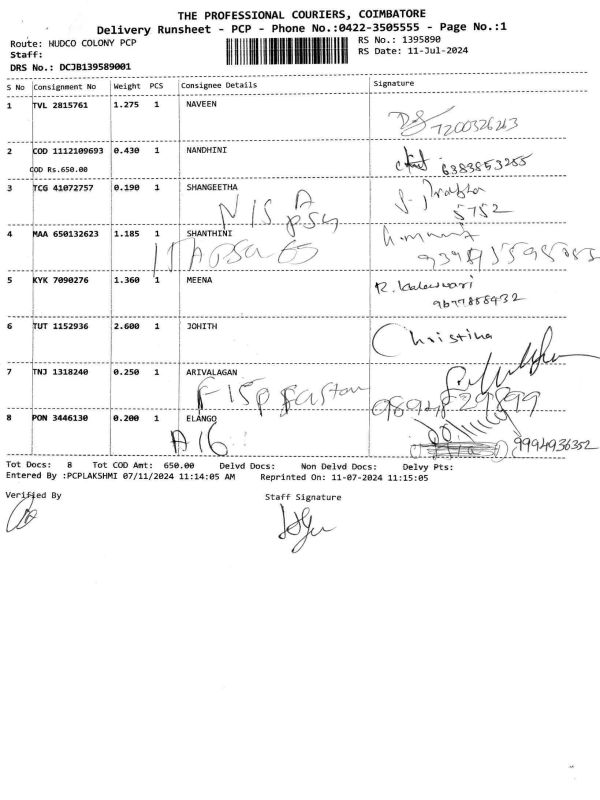 THE PROFESSIONAL COURIERS, COIMBATORE
Delivery Runsheet - PCP - Phone No.:0422-3505555 - Page No.:1
Route: HUDCO COLONY PCP
RS No.: 1395890
Staff:
RS Date: 11-Jul-2024
DRS No.: DCJB139589001
S No Consignment No Weight PCS Consignee Details Signature
1 TVL 2815761 1.275 1 NAVEEN
7200326263
2 COD 1112109693 0.430 1 NANDHINI
6383853255
COD Rs.650.00
3 TCG 41072757 0.190 1 SHANGEETHA
5752
4 MAA 650132623 1.185 1 SHANTHINI
5 KYK 7090276 1.360 1 MEENA
R. Kaleswari
9677858432
6 TUT 1152936 2.600 1 JOHITH
Christina
7 TNJ 1318240 0.250 1 ARIVALAGAN
8 PON 3446130 0.200 1 ELANGO
A16
9994936352
Tot Docs: 8 Tot COD Amt: 650.00 Delvd Docs: Non Delvd Docs: Delvy Pts:
Entered By :PCPLAKSHMI 07/11/2024 11:14:05 AM Reprinted On: 11-07-2024 11:15:05
Verified By
Staff Signature